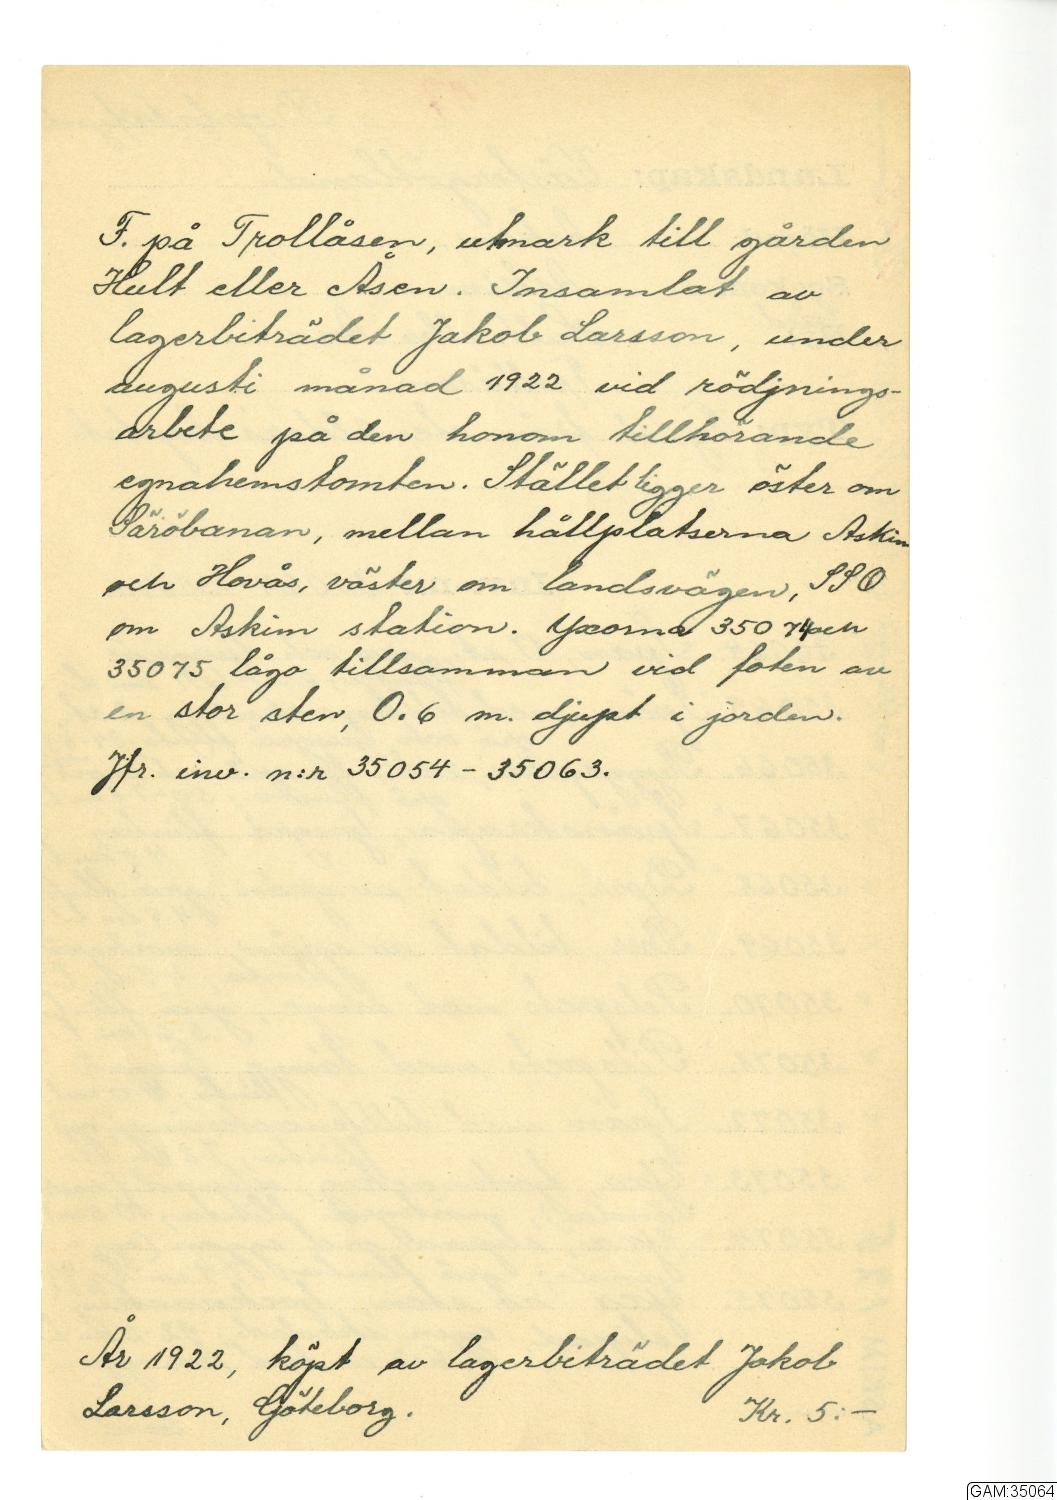 F. på Trollåsen, utmark till gården
Hult eller Åsen. Insamlat av
lagerbiträdet Jakob Larsson, under
augusti månad 1922 vid rödjnings-
arbete på den honom tillhörande
egnahemstomten. Stället ligger öster om
Säröbanan, mellan hållplatserna Askim
och Hovås, väster om landsvägen, SSO
om Askim station. Yxorna 35074 och
35075 lågo tillsamman vid foten av
en stor sten, 0.6 m. djupt i jorden.
Jfr. inv. n:r 35054 - 35063.
År 1922, köpt av lagerbiträdet Jakob
Larsson, Göteborg. Kr. 5:-
GAM:35064